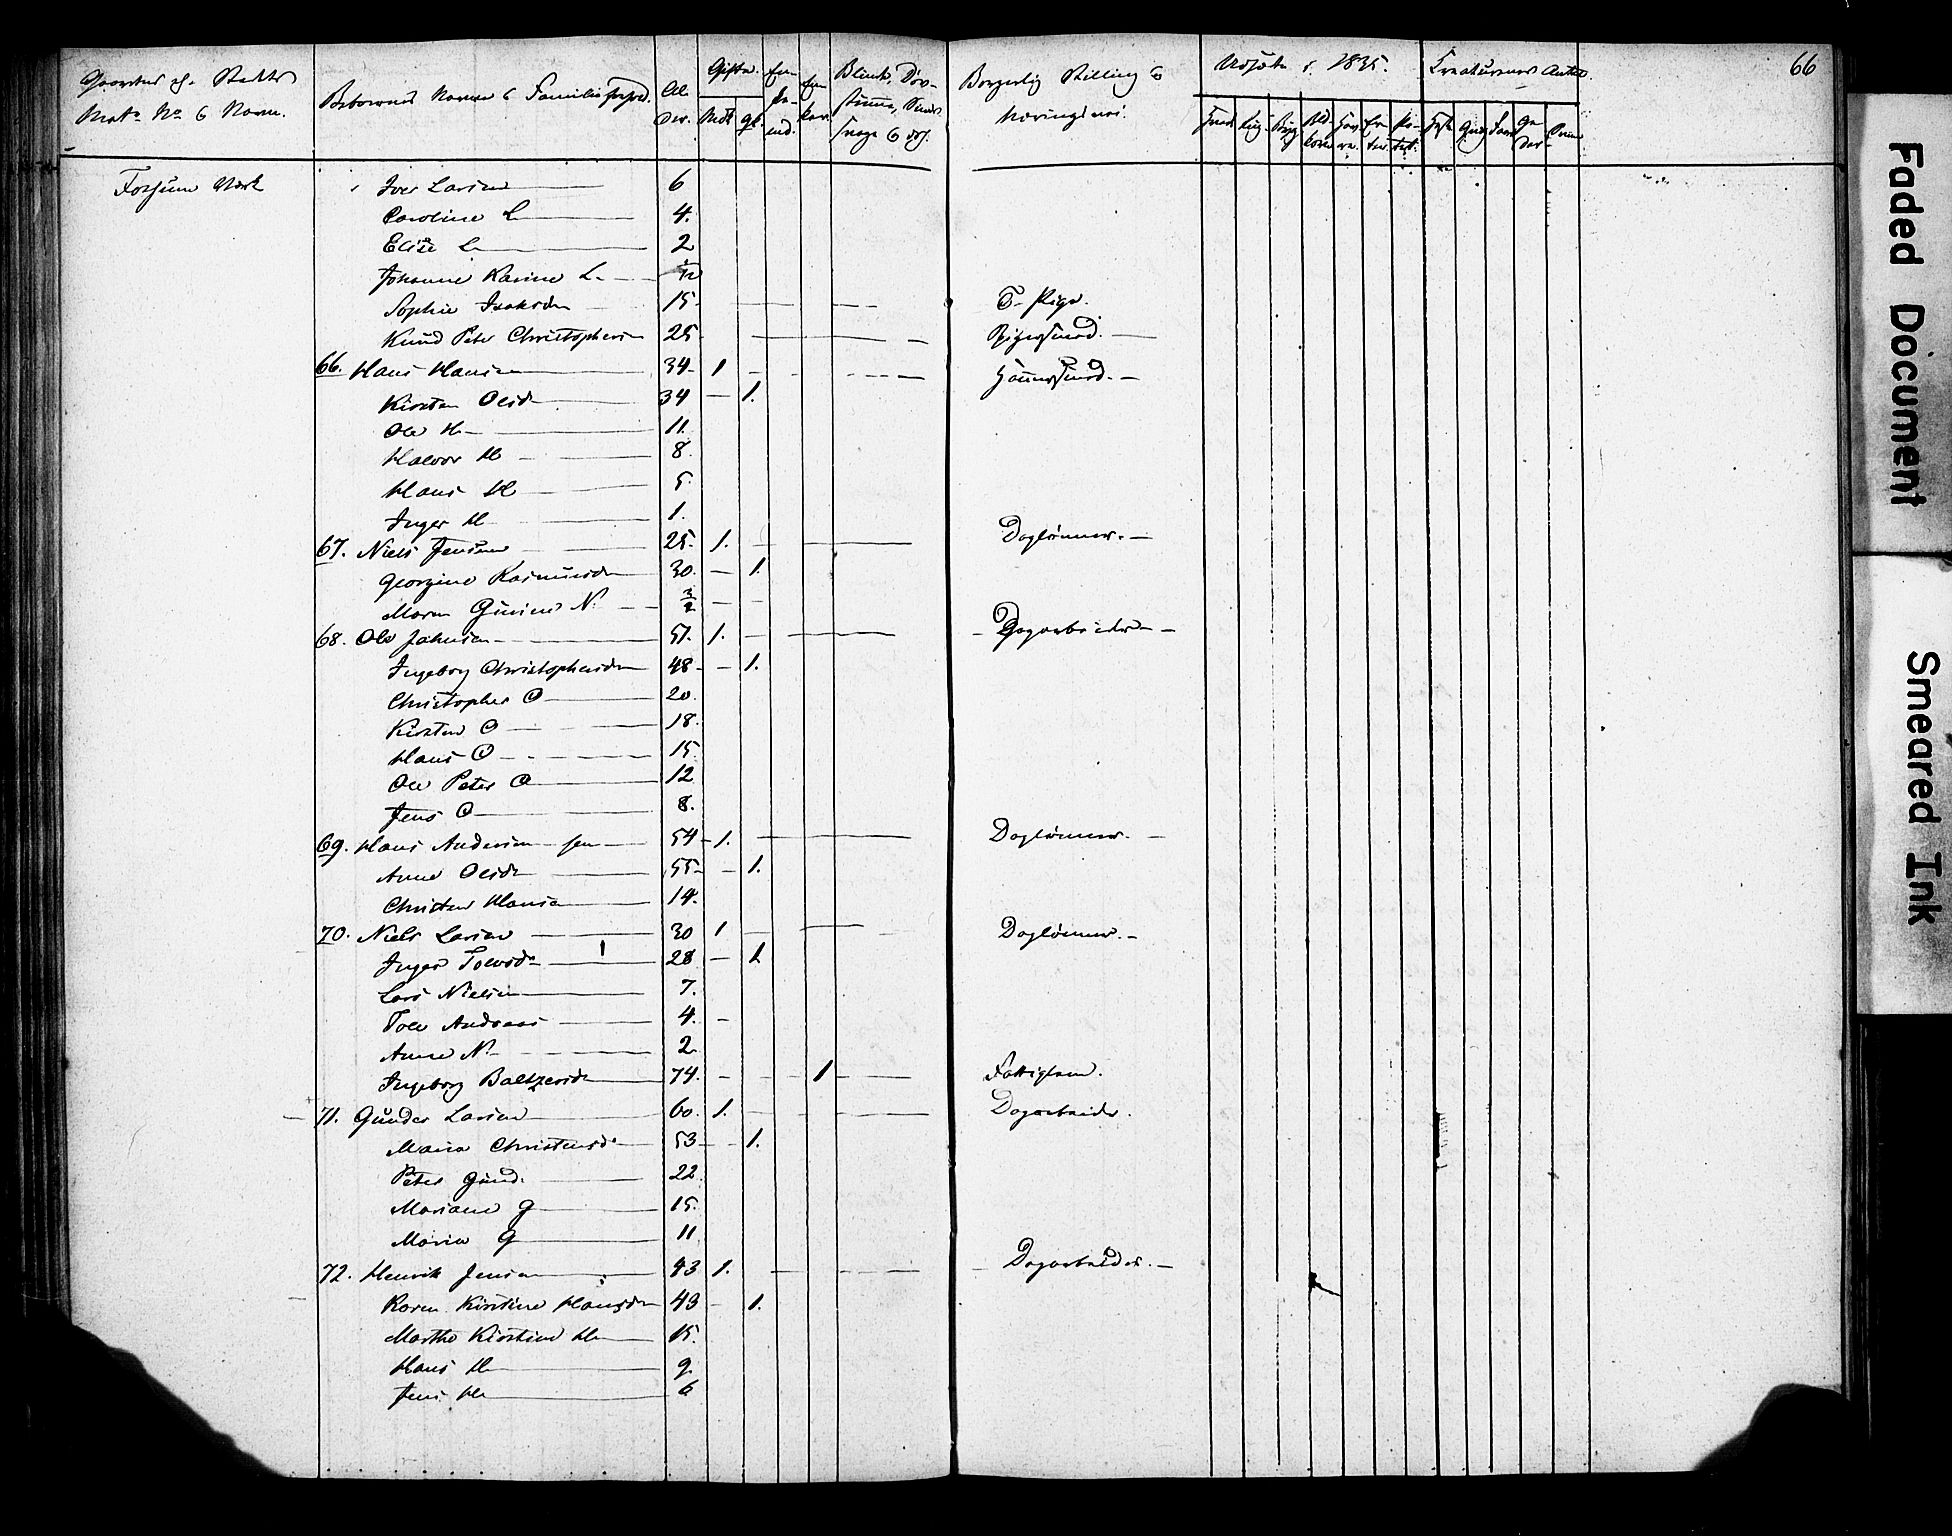 66
Gaardens ell. Stedets Matr. No & Navn.
Beboernes Navne & Familieforhold.
Al-der.
Gifte.
Mdk
qk.
En-ke-md.
En-ker.
Blinde, Døv-stumme,
Borgerlig Stilling & Næringsvei.
Udsæd i 1835.
Creaturenes Antal.
Fossum Værk
Iver Larsen 6
Caroline L 4.
Elise L 2
Johanne Karine L.
Sophie Isaksdr 15 T. Pige.
Knud Peter Christophersen 25
66. Hans Hansen 34 1
Kirsten Olsdr 34 1.
Ole H 11.
Halvor H 8.
Hans H 5
Inger H 1.
67. Niels Jensen 25. 1. Daglønner.
Georgine Rasmusdr 30. 1.
Maren Gurine N. 3/2
68. Ole Johnsen 51. 1. Dagarbeider
Ingeborg Christophersdr 48 1.
Christopher O 20.
Kirsten O 18.
Hans O 15
Ole Peter O 12
Jens O 8.
69. Hans Andersen sen 54 1. Daglønner.
Anne Olsdr 55 1.
Christen Hansen 14.
70. Niels Larsen 30 1 Daglønner.
Inger Tolvsdr 1 28 1.
Lars Nielsen 7.
Tolv Andreas 4.
Anne N. 2
Ingeborg Baltzersdr 74. 1 Fattiglem.
71. Gunder Larsen 60. 1. Dagarbeider.
Maria Christensdr 53 1.
Peter Gund. 22
Mariane G 15.
Maria G 11
72. Henrik Jensen 43 1. Dagarbeider.
Karen Kirstine Hansdr 43 1.
Marthe Kirstine H 15.
Hans H 9.
Jens H 6
Faded Document
Smeared Ink